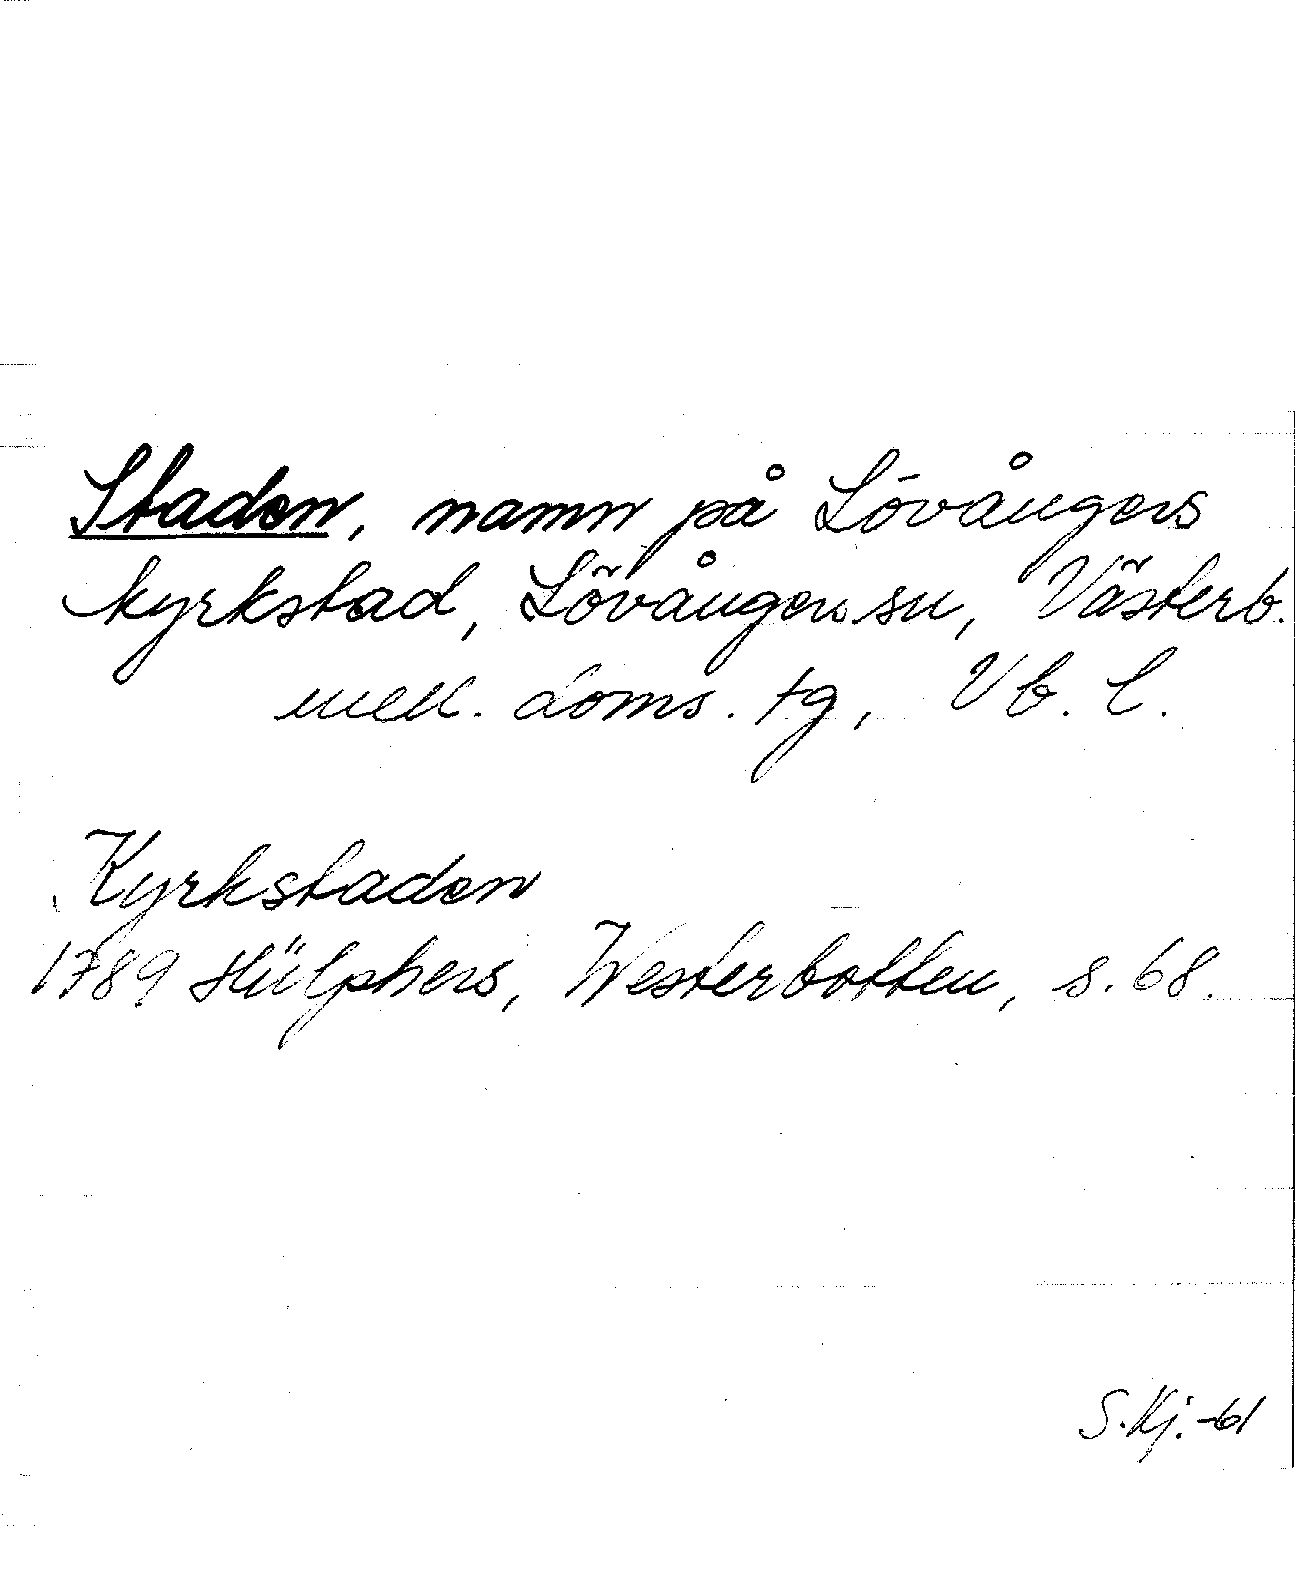 Staden, namn på Lövångers
kyrkstad, Lövångers sn, Västerb.
mell. doms. tg, Vb. l.
Kyrkstaden
1789 Hülphers, Westerbotten, s. 68.
S.Kj.-61